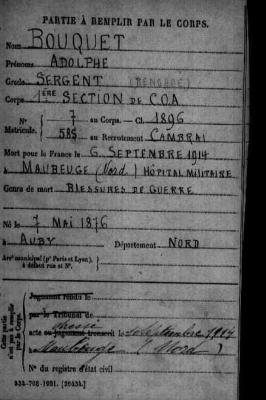 PARTIE À REMPLIR PAR LE CORPS.
Nom BOUQUET
Prénoms ADOLPHE
Grade SERGENT (RENGAGÉ)
Corps 1ÈRE SECTION DE C.O.A
N° 7 au Corps. — Cl. 1896
Matricule. 585 au Recrutement CAMBRAI
Mort pour la France le 6 SEPTEMBRE 1914
à MAUBEUGE (Nord) HÔPITAL MILITAIRE
Genre de mort BLESSURES DE GUERRE
Né le 7 MAI 1876
à AUBY Département NORD
Arrt municipal (pr Paris et Lyon),
à défaut rue et N°.
Cette partie
n'est pas à remplir
par le Corps.
Jugement rendu le
par le Tribunal de
acte ou jugement transcrit le 10 septembre 1914
à Maubeuge (Nord)
N° du registre d'état civil
534-708-1921. [26434.]